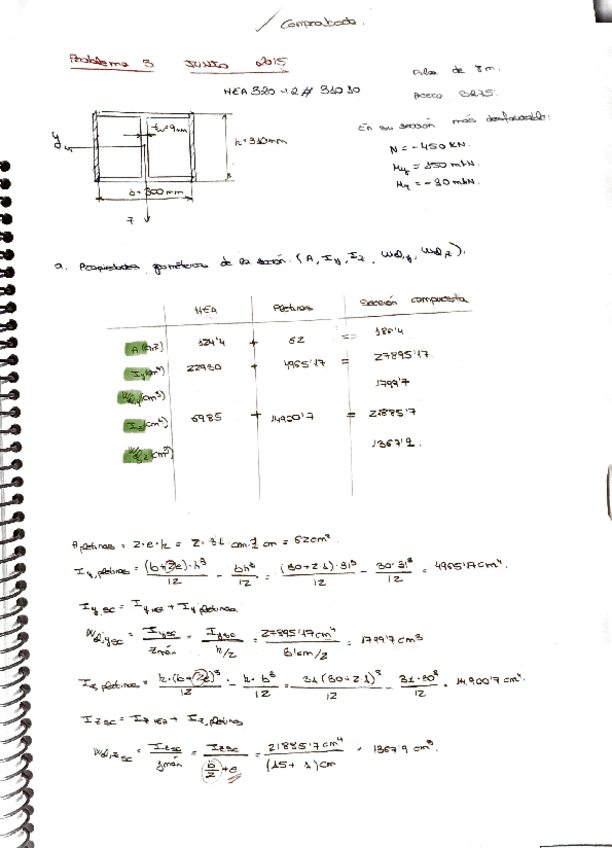 ✓ Comprobado.
Problema 3 JUNIO 2015
Pilar de 8m.
HEA 320 + 2 # 310.10
Acero S275.
En su sección más desfavorable:
tw = 9mm
h = 310mm
N = -450 KN.
y
b = 300 mm
z
a. Propiedades geométricas de la sección. (A, Iy, Iz, Wel,y, Wel,z).
HEA Platinas Sección compuesta
A (cm2) 124'4 + 62 => 186'4
Iy (cm4) 22930 + 4965'17 = 27895'17
Wel,y (cm3) 1799'7
Iz (cm4) 6985 + 14900'7 = 21885'7
Wel,z (cm3) 1367'9.
A platinas = 2·e·h = 2· 31 cm· 1 cm = 62cm2.
Iy, platinas = (b+2e)·h3 / 12 - bh3 / 12 = (30+2·1)·313 / 12 - 30·313 / 12 = 4965'17 cm4.
Iy,sc = Iy HEA + Iy platinas.
Wel,y sc = Iy sc / zmáx = Iy sc / h/2 = 27895'17 cm4 / 31cm/2 = 1799'7 cm3
Iz, platinas = h·(b+2e)3 / 12 - h·b3 / 12 = 31(30+2·1)3 / 12 - 31·303 / 12 = 14.900'7 cm4.
Iz sc = Iz HEA + Iz, platinas
Wel,z sc = Iz sc / ymáx = Iz sc / b/2 + e = 21885'7 cm4 / (15+1) cm = 1367'9 cm3.